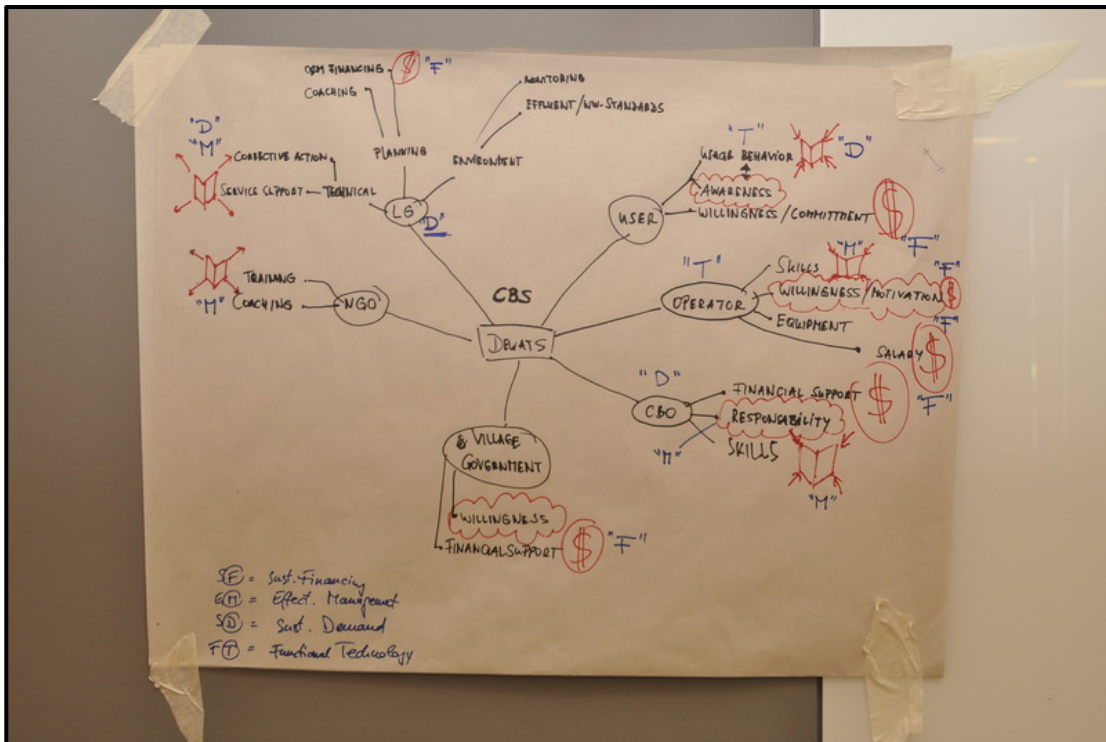 O&M FINANCING $ "F"
COACHING
PLANNING
MONITORING
EFFLUENT/WW-STANDARDS
ENVIRONMENT
"D"
"M"
CORRECTIVE ACTION
SERVICE SUPPORT
TECHNICAL
LG
"D"
"T"
USAGE BEHAVIOR
"D"
AWARENESS
WILLINGNESS/COMMITTMENT $
"F"
USER
TRAINING
"M" COACHING
NGO
CBS
DEWATS
"T"
OPERATOR
SKILLS
"M"
"F"
WILLINGNESS/MOTIVATION $
"F"
EQUIPMENT
SALARY $
"F"
"D"
CBO
FINANCIAL SUPPORT $
RESPONSABILITY
"M"
SKILLS
"M"
& VILLAGE
GOVERNMENT
WILLINGNESS
FINANCIAL SUPPORT $ "F"
SF = Sust. Financing
EM = Effect. Managemet
SD = Sust. Demand
FT = Functional Technology